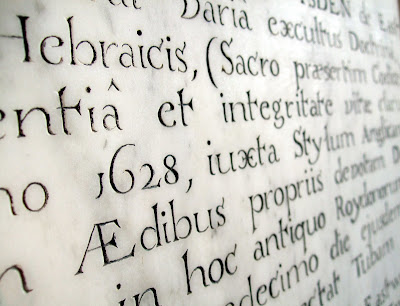 Daria excultus Doctrina
Hebraicis, (Sacro præsertim Codice
entiâ et integritate vitæ clarus
no 1628, iuxta Stylum Anglican
Ædibus propriis denotam D
in hoc antiquo Roydonorum
decimo die ejusdem
ctat Tubam